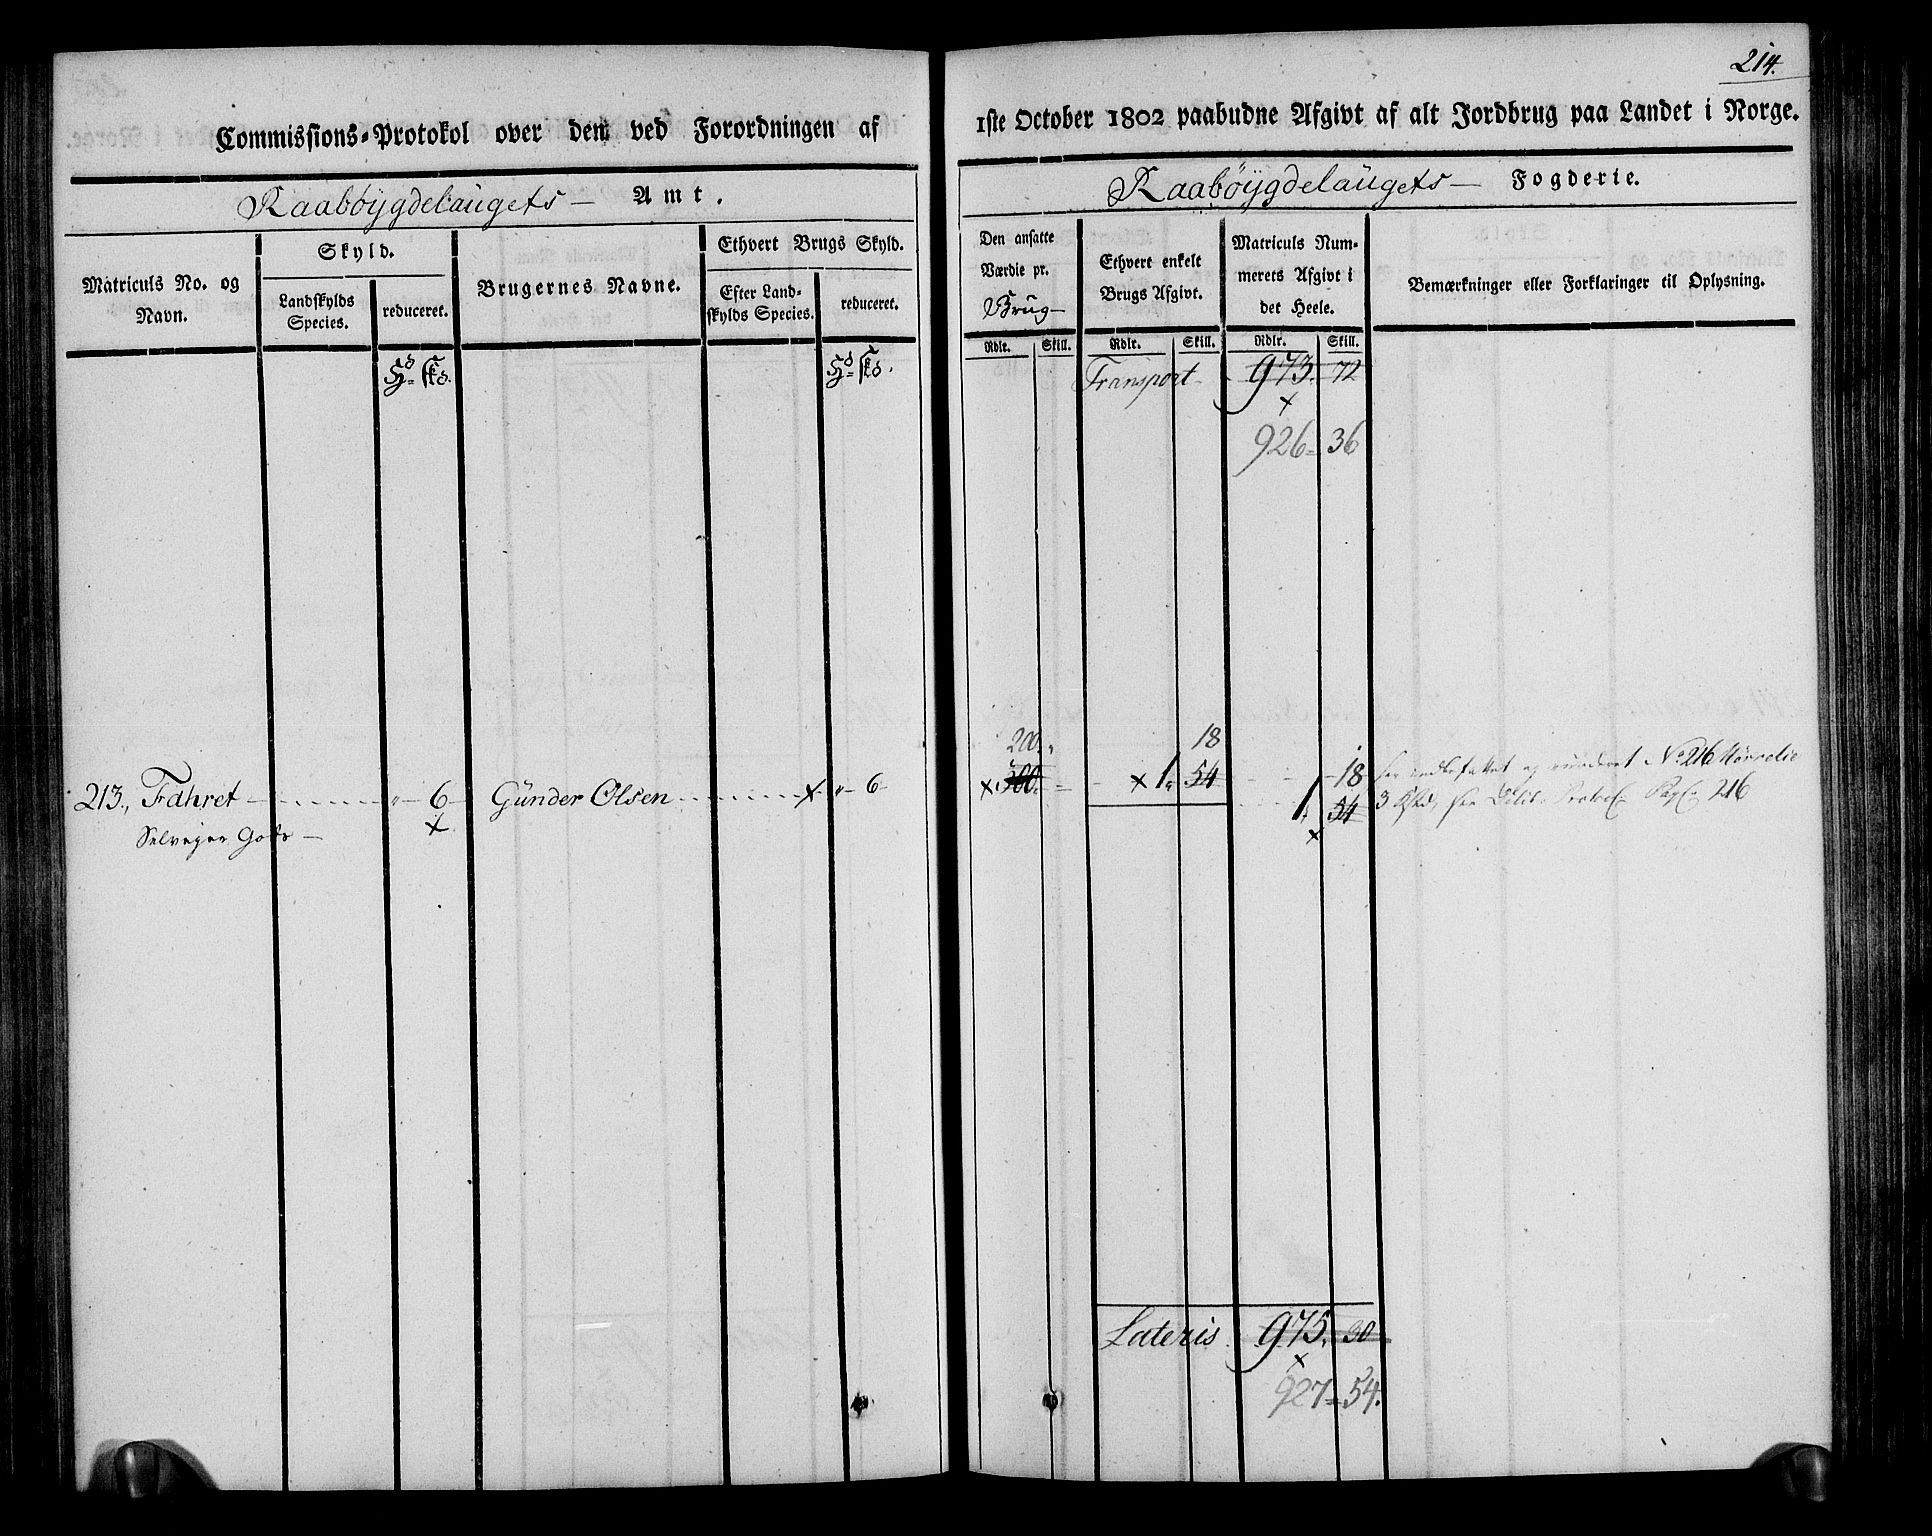 214.
Commissions-Protokol over den ved Forordningen af
1ste October 1802 paabudne Afgivt af alt Jordbrug paa Landet i Norge.
Raabøygdelaugets — Amt.
Raabøygdelaugets — Fogderie.
Matriculs No. og Navn.
Skyld.
Landskylds Species.
reduceret.
Brugernes Navne.
Ethvert Brugs Skyld.
Efter Landskylds Species.
reduceret.
Den ansatte Værdie pr. Brug
Ethvert enkelt Brugs Afgivt.
Matriculs Nummerets Afgivt i det Heele.
Bemærkninger eller Forklaringer til Oplysning.
Rdlr. Skill. Rdlr. Skill. Rdlr. Skill.
Transport 973. 72
926 = 36
200. 18
213., Fahret 6 Günder Olsen 6 300. 1. 54 18 No. 216
Selveyer Gods — 1. 54 216
Lateris 975. 30
927 = 54.